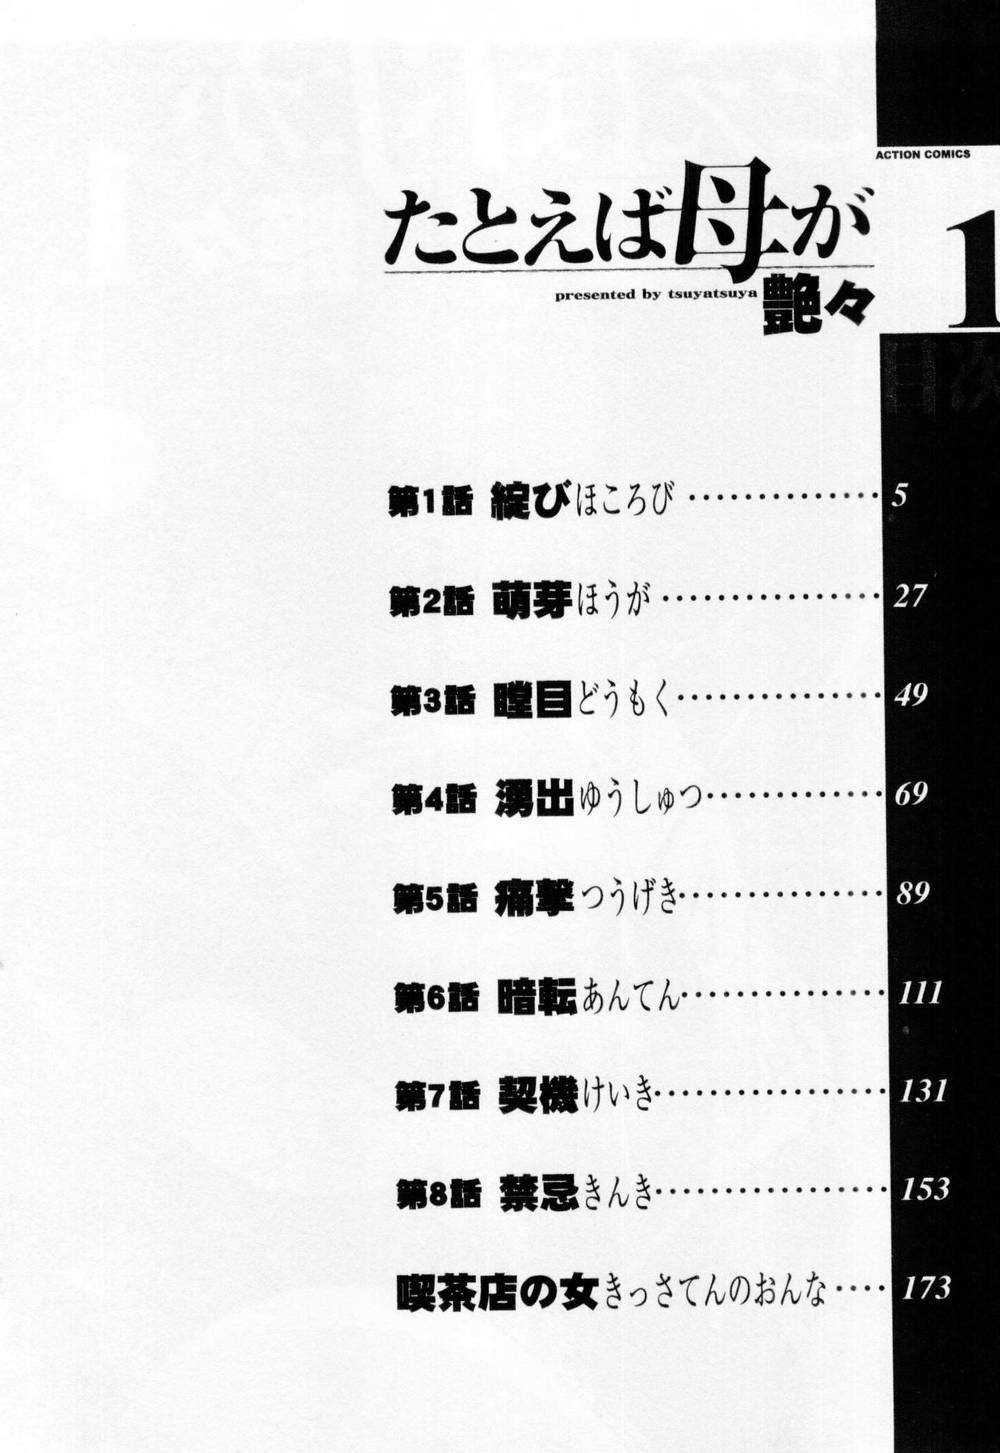 ACTION COMICS
たとえば母が
1
presented by tsuyatsuya 艶々
目次
第1話 綻び ほころび …………… 5
第2話 萌芽 ほうが …………… 27
第3話 瞠目 どうもく …………… 49
第4話 湧出 ゆうしゅつ …………… 69
第5話 痛撃 つうげき …………… 89
第6話 暗転 あんてん …………… 111
第7話 契機 けいき …………… 131
第8話 禁忌 きんき …………… 153
喫茶店の女 きっさてんのおんな …… 173